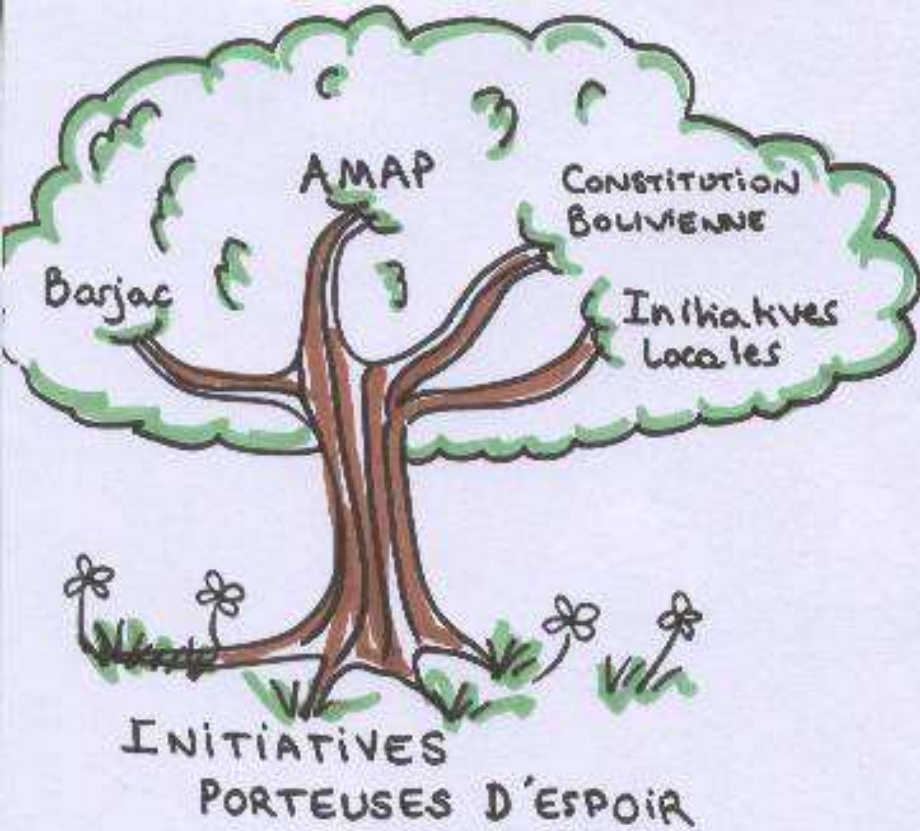 AMAP
CONSTITUTION
BOLIVIENNE
Barjac
Initiatives
Locales
INITIATIVES
PORTEUSES D'ESPOIR